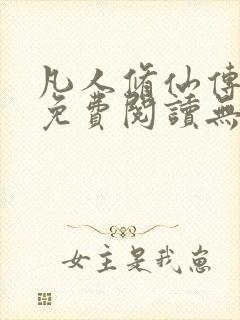 凡人修仙傳
免費閱讀無
女主是我崽